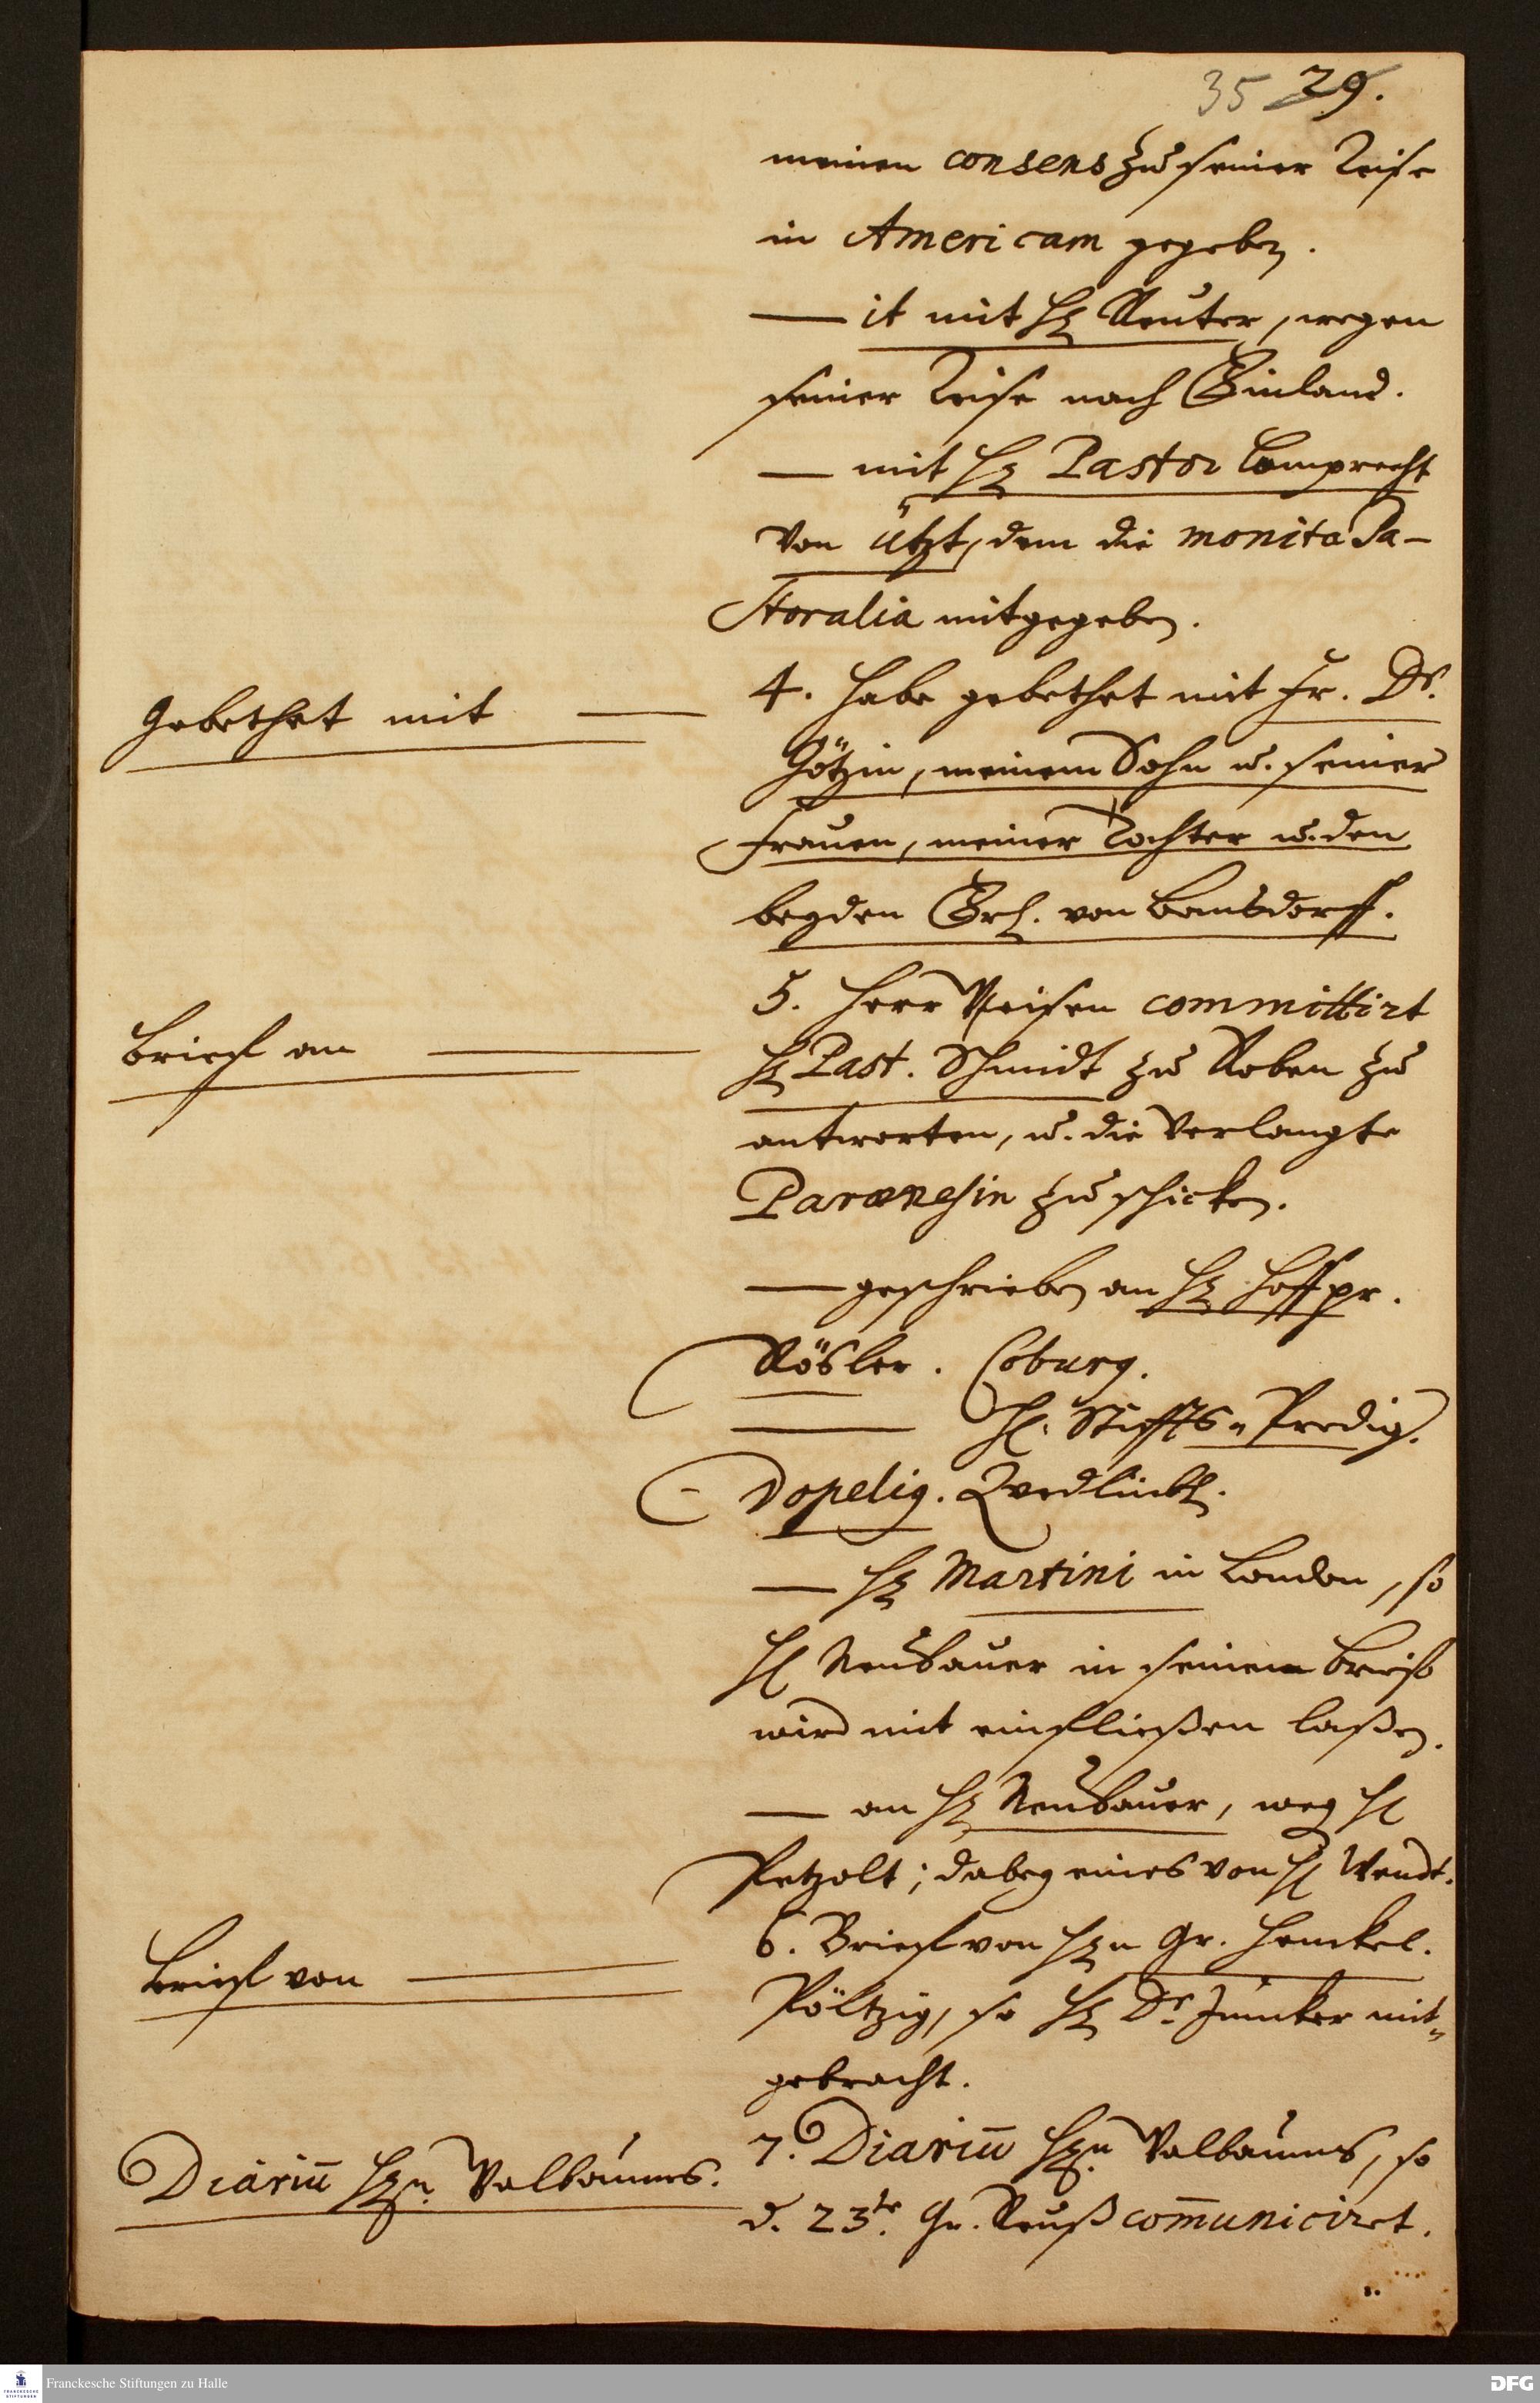 35 29.
meinen consens zu seiner Reise
in Americam gegeben.
— it mit H. Reuter, wegen
seiner Reise nach Finland.
— mit H. Pastor Lamprecht
von ützt, dem die monita Pa-
storalia mitgegeben.
Gebethet mit — 4. Habe gebethet mit Fr. Dr.
Götzin, meinem Sohn u. seiner
Frauen, meiner Tochter u. den
beyden Frl. von
Brieff an — 5. Herr committirt
H. Past. Schmidt zu Roben zu
antworten, u. die verlangte
Parænesin zu schicken.
— geschrieben an H. Hoffpr.
Rösler. Coburg.
— H. Stiffts-Predig.
Dopelig. Qvedlinb.
— H. Martini in London, so
H. Neubauer in seinem Brieff
wird mit einfließen laßen.
— an H. Neubauer, weg. H.
Petzolt; dabey eines von H. Wendt.
Brieff von — 6. Brieff von H.n Gr. Henckel.
Pöltzig, so H. Dr. Juncker mit-
gebracht.
Diariū H.n Valbaums. 7. Diariū H.n Valbaums, so
d. 23te. Gr. Reuß com̄uniciret.
Franckesche Stiftungen zu Halle
DFG